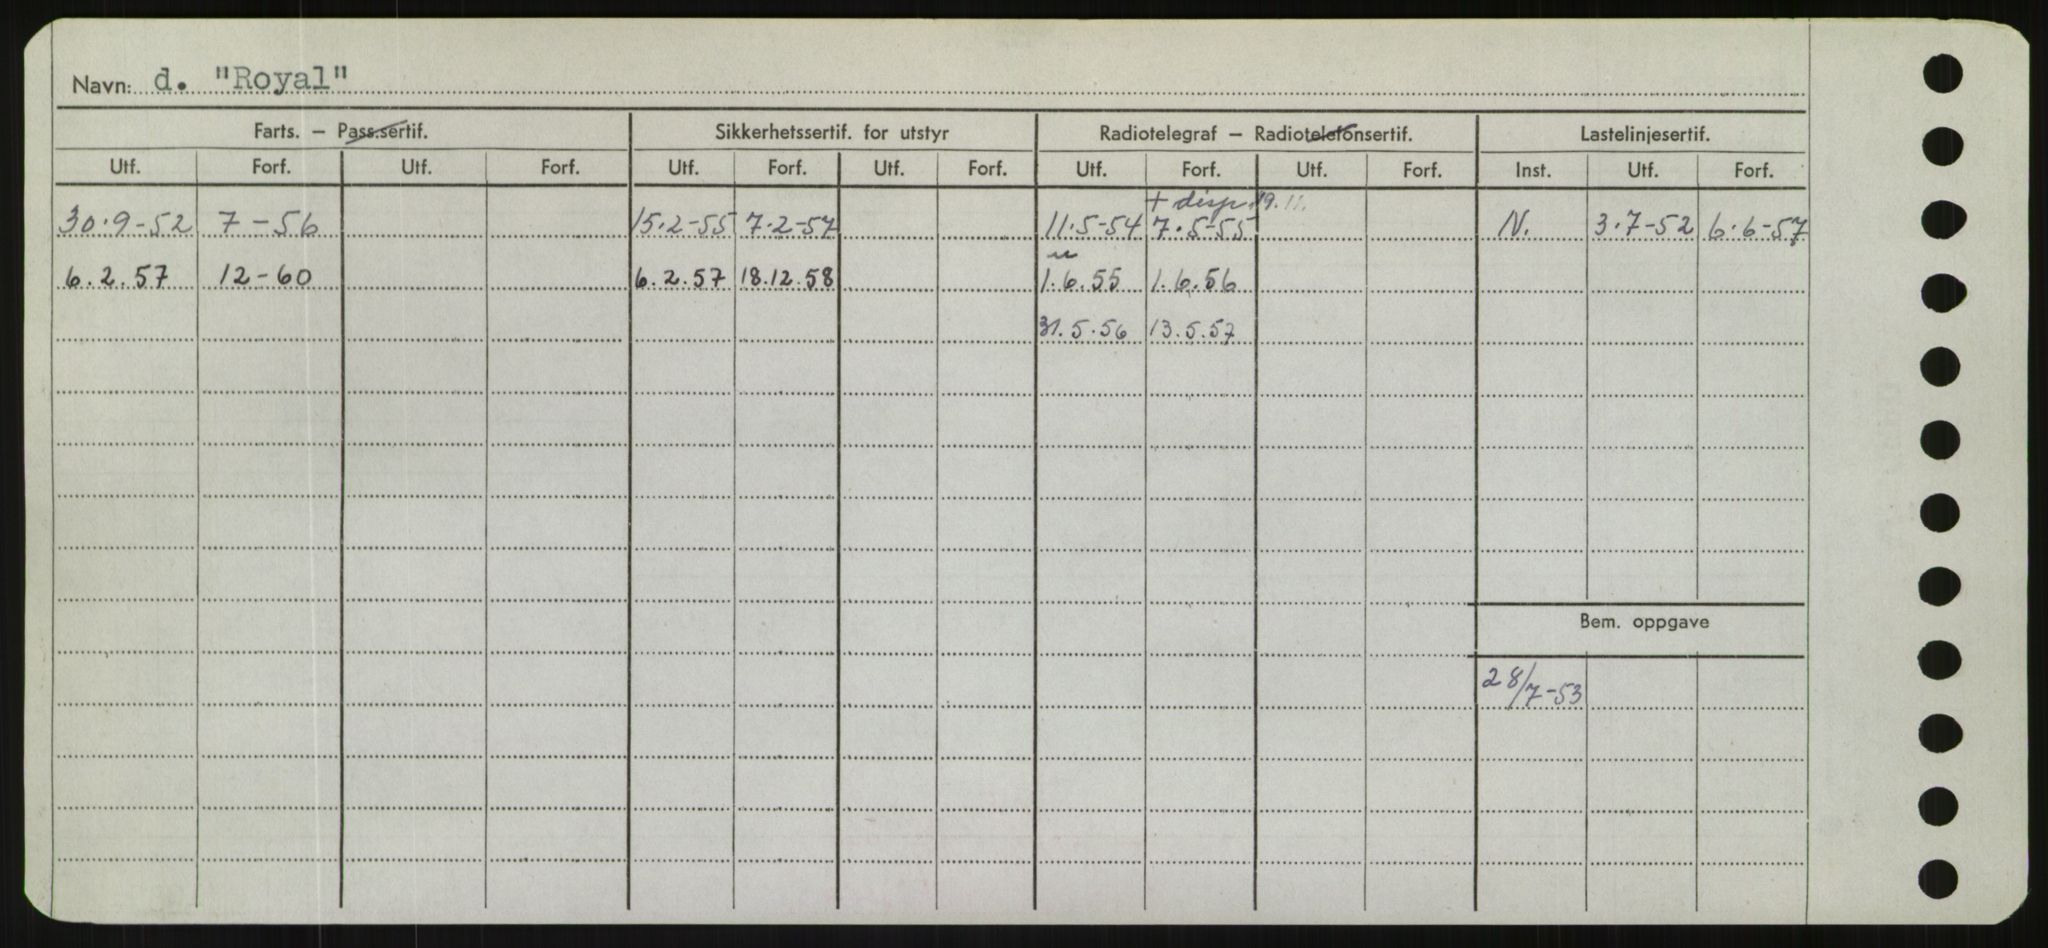 Navn: d. "Royal"
Farts. – Pass.sertif. Sikkerhetssertif. for utstyr Radiotelegraf – Radiotelefonsertif. Lastelinjesertif.
Utf. Forf. Utf. Forf. Utf. Forf. Utf. Forf. Utf. Forf. Utf. Forf. Inst. Utf. Forf.
+ disp. 19.11.
30.9-52 7-56 15.2-55 7.2-57 11.5-54 7.5-55 N. 3.7-52 6.6-57
6.2.57 12-60 6.2.57 18.12.58 1.6.55 1.6.56
31.5.56 13.5.57
Bem. oppgave
28/7-53